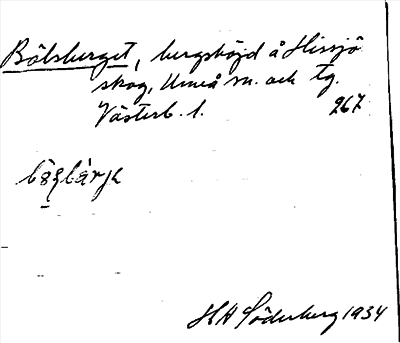 Bölsberget, bergshöjd å Hissjö
skog, Umeå sn. och tg.
Västerb. l. 267
H A Söderberg 1934